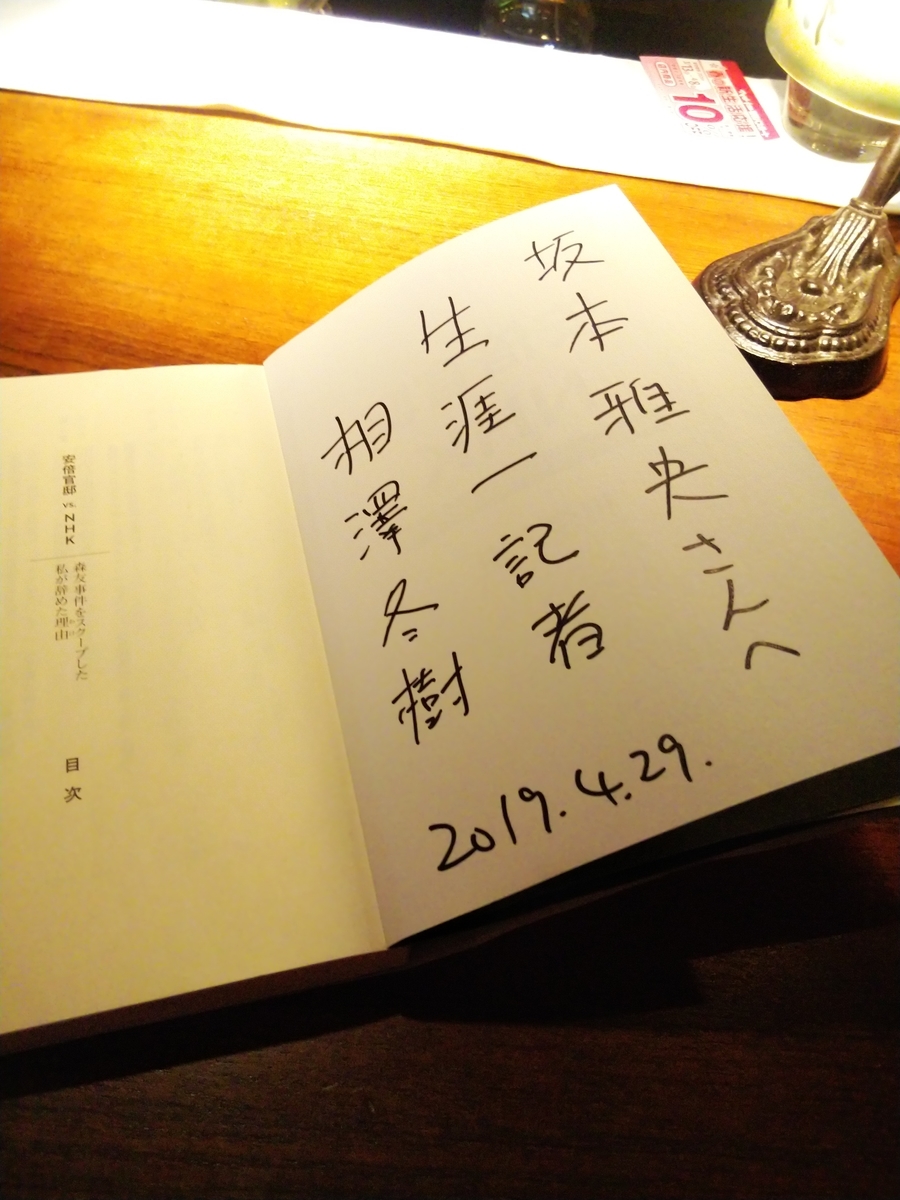 坂本雅央さんへ
生涯一記者
相澤冬樹
2019.4.29.
安倍官邸 vs. NHK
森友事件をスクープした
私が辞めた理由
目次
10